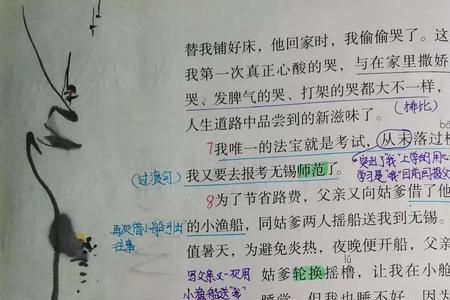 替我铺好床，他回家时，我偷偷哭了。这
我第一次真正心酸的哭，与在家里撒娇
哭、发脾气的哭、打架的哭都大不一样，
人生道路中品尝到的新滋味了。
(排比)
7我唯一的法宝就是考试，从未落过榜
突出了"我"上学的用心
(过渡句)
我又要去报考无锡师范了。
学习是"我"目前回报父
8为了节省路费，父亲又向姑爹借了他
再次借小船引出
往事
的小渔船，同姑爹两人摇船送我到无锡。
值暑天，为避免炎热，夜晚便开船，父亲
写父亲又一次用
lǔ
姑爹轮换摇橹，让我在小舱
小渔船送"我"
睡觉。但我也睡不好，因为